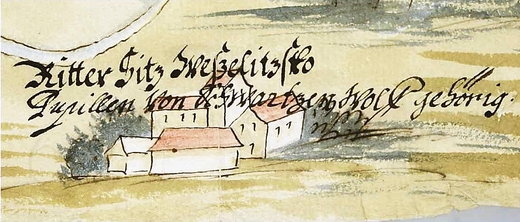 Ritter Sitz Weßelitzko
Pupillen von Schwartzen Wolf gehörig.